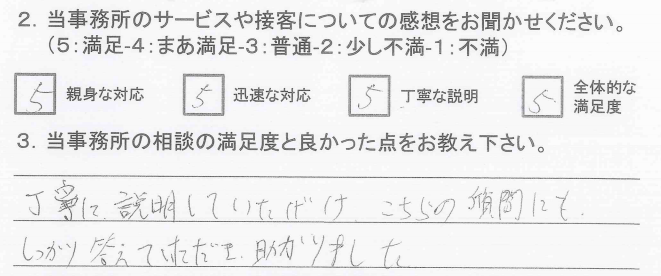 2. 当事務所のサービスや接客についての感想をお聞かせください。
(5:満足-4:まあ満足-3:普通-2:少し不満-1:不満)
5 親身な対応 5 迅速な対応 5 丁寧な説明 5 全体的な満足度
3. 当事務所の相談の満足度と良かった点をお教え下さい。
丁寧に、説明していただけ、こちらの質問にも、
しっかり答えていただき、助かりました